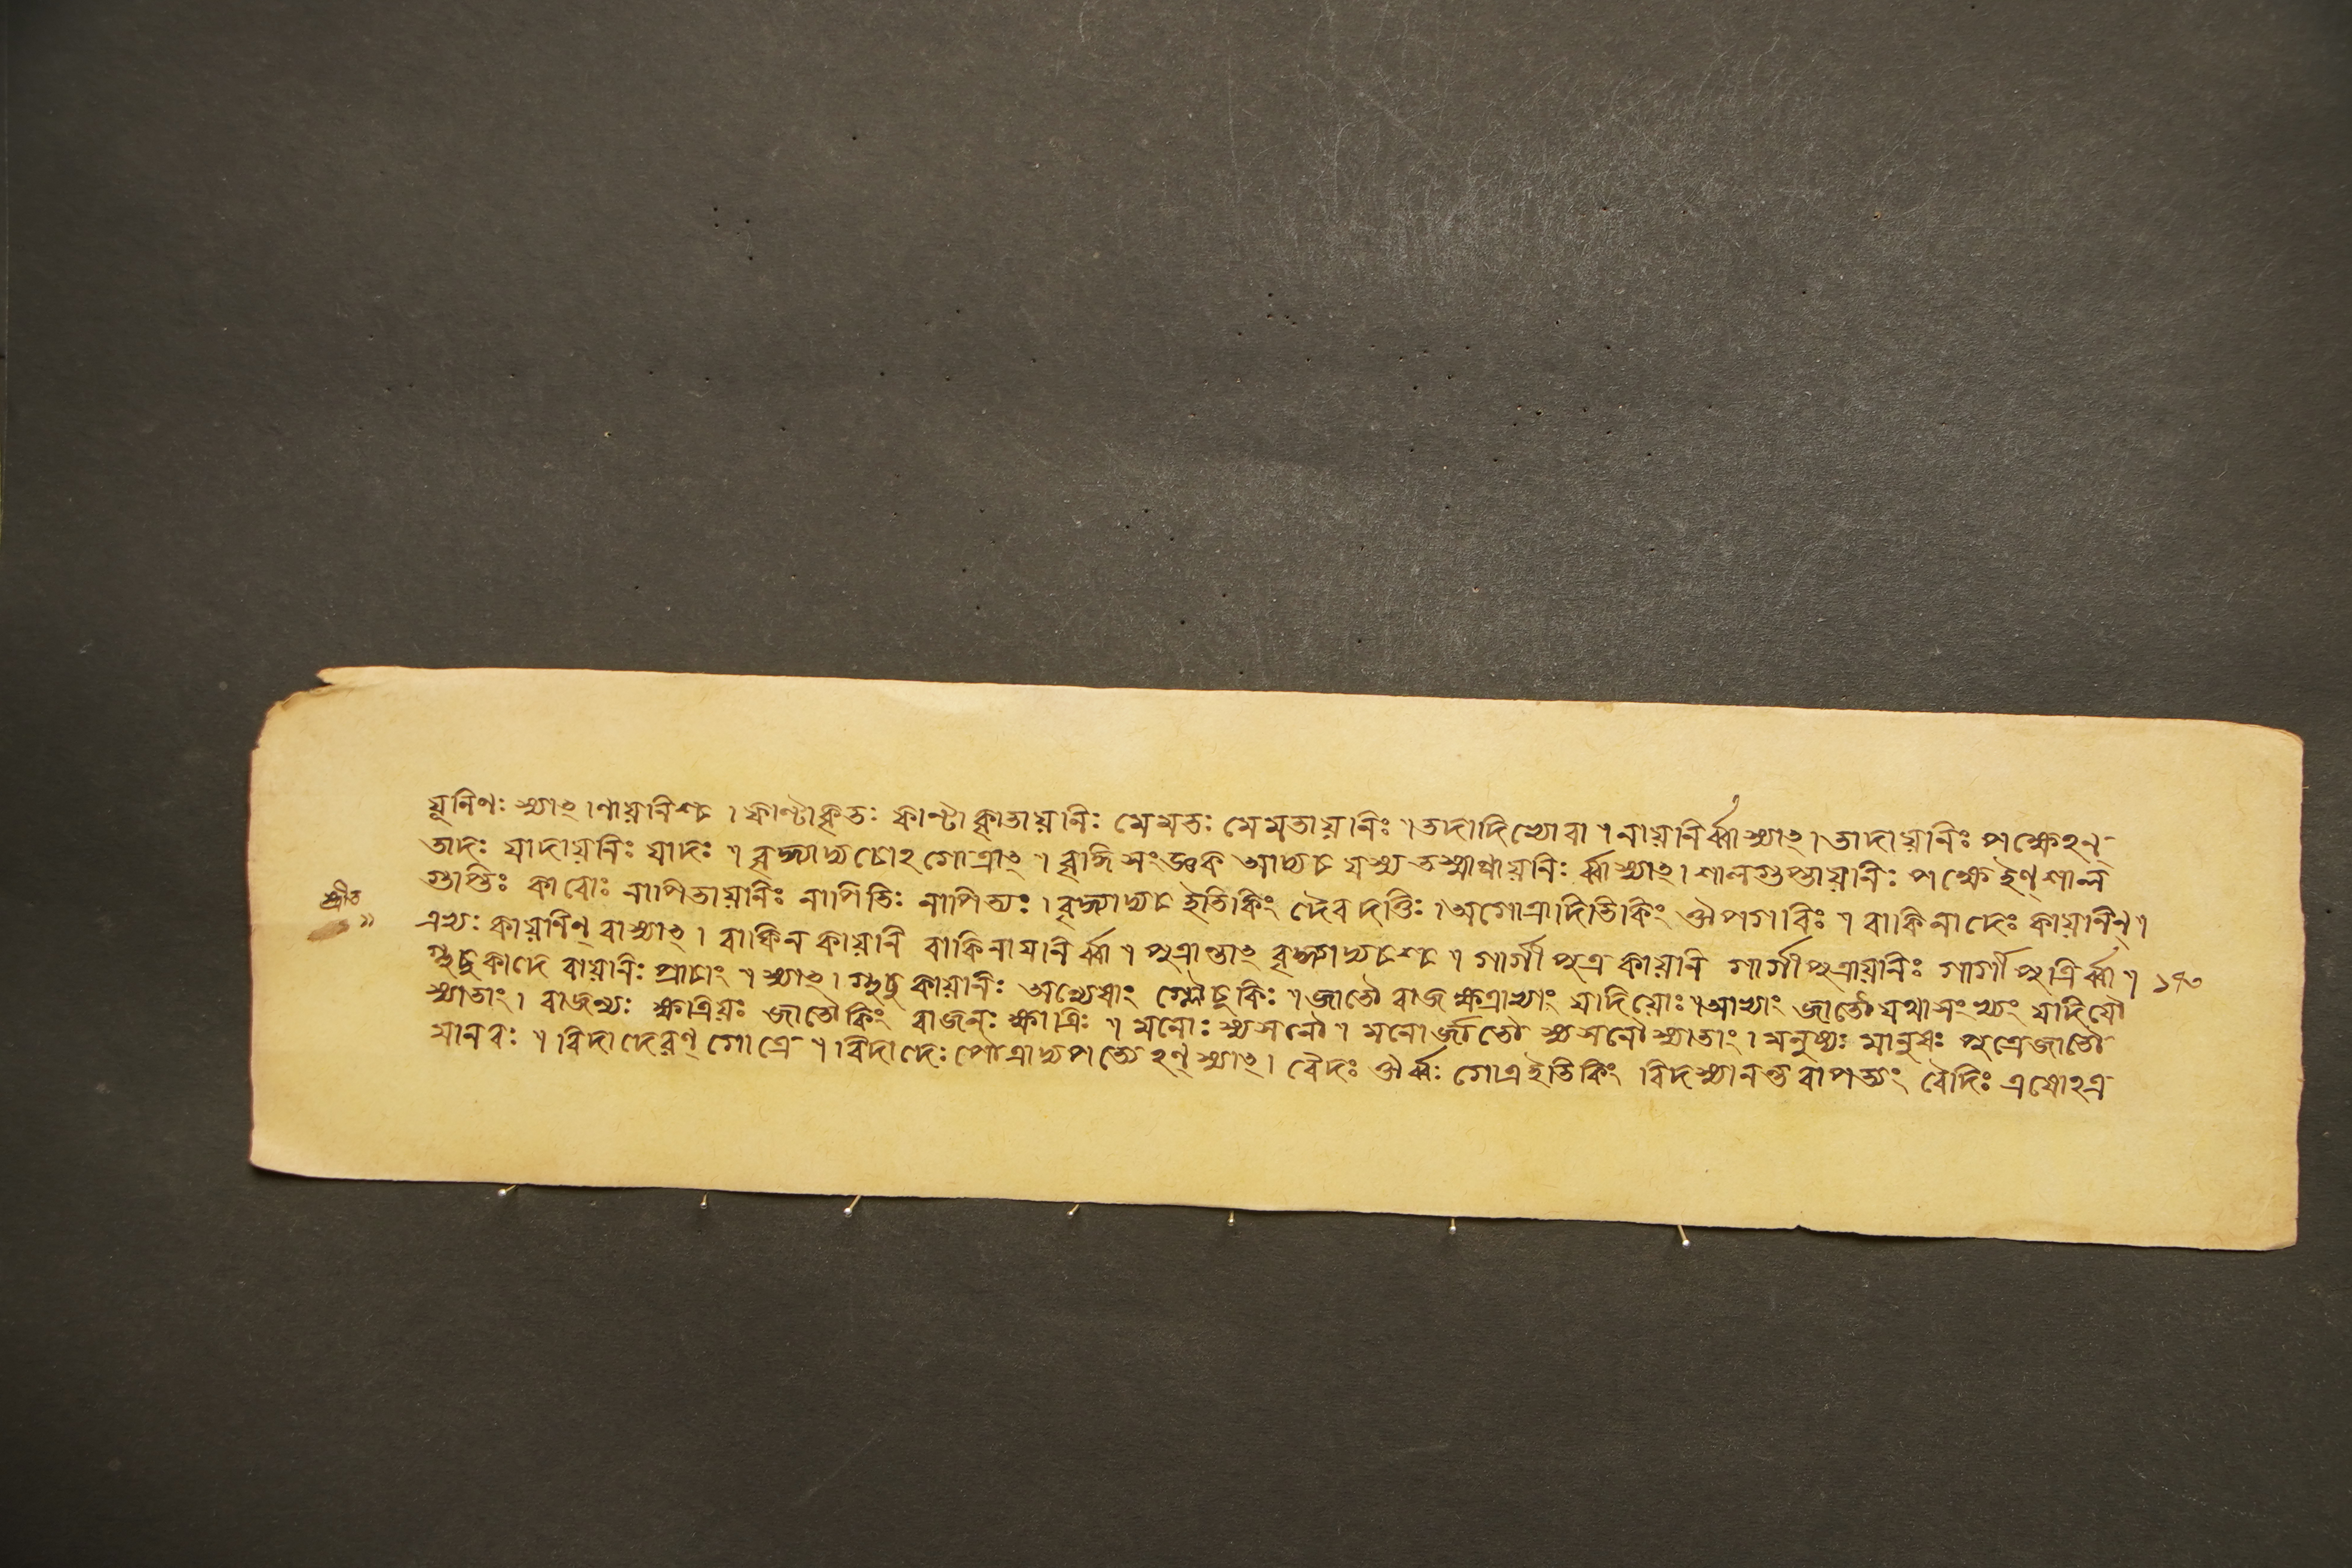 যূনিণঃ স্যাৎ।ণায়নিশ্চ।ফাণ্টাহৃতঃ ফাণ্টাহৃতায়নিঃ মৈমতঃ মৈমতায়নিঃ॥ত্যদাদিভ্যোবা॥নায়নির্ব্বাস্যাৎ।তাদায়নিঃ পক্ষেহন্
তাদঃ যাদায়নিঃ যাদঃ॥বৃদ্ধ্যাদ্যচোহগোত্রাৎ॥বৃদ্ধিসংজ্ঞক আদ্যচ যস্য তস্মাণ্ণায়নিঃ র্ব্বাস্যাৎ।শালগুপ্তায়নিঃ পক্ষেইণ্ শাল
গুপ্তিঃ কাবোঃ নাপিতায়নিঃ নাপিতিঃ নাপিত্যঃ।বৃদ্ধ্যাদ্যচ ইতিকিং দৈবদত্তিঃ।অগোত্রাদিতিকিং ঔপগবিঃ॥বাকিনাদেঃ কায়নিন্॥
এভ্যঃ কায়ণিন্ বাস্যাৎ। বাকিনকায়নি বাকিনায়নির্ব্বা॥পুত্রান্তাৎ বৃদ্ধ্যাদ্যচশ্চ॥গার্গীপুত্রকায়নি গার্গীপুত্রায়নিঃ গার্গীপুত্রির্ব্বা॥ ১৭৩
গ্লুচুকাদে রায়নিঃ প্রাচাং॥স্যাৎ।গ্লুচুকায়নিঃ অন্যেষাং গ্লৌচুকিঃ॥জাতৌ রাজক্ষত্রাভ্যাং যাদিয়োঃ॥আভ্যাং জাতৌ যথাসংখ্যং যাদিযৌ
স্যাতাং। রাজন্যঃ ক্ষত্রিয়ঃ জাতৌকিং রাজনঃ ক্ষাত্রিঃ॥মনোঃ ষ্যসনৌ॥মনোর্জাতৌ ষ্যসনৌস্যাতাং।মনুষ্যঃ মানুষঃ পুত্রেজাতৌ
মানবঃ॥বিদাদেরণ্ গোত্রে॥বিদাদেঃ পৌত্রাদ্যপত্যেহণ্ স্যাৎ। বৈদঃ ঔর্ব্বঃ গোত্রইতিকিং বিদস্যানন্তরাপত্যং বৈদিঃ এষোহত্র